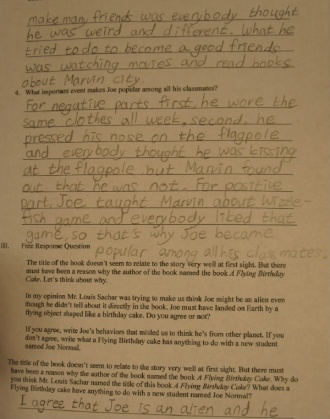 make many friends was everybody thought
he was weird and different. What he
tried to do to become a good friends
was watching movies and read books
about Marvin city.
4. What important event makes Joe popular among all his classmates?
For negative parts first, he wore the
same clothes all week, second, he
pressed his nose on the flagpole
and everybody thought he was kissing
at the flagpole but Marvin found
out that he was not. For positive
part, Joe taught Marvin about Wizzle-
fish game and everybody liked that
game, so that's why Joe became
popular among all his classmates.
III. Free Response Question
The title of the book doesn't seem to relate to the story very well at first sight. But there
must have been a reason why the author of the book named the book A Flying Birthday
Cake. Let's think about why.
In my opinion Mr. Louis Sachar was trying to make us think Joe might be an alien even
though he didn't tell about it directly in the book. Joe must have landed on Earth by a
flying object shaped like a birthday cake. Do you agree or not?
If you agree, write Joe's behaviors that misled us to think he's from other planet. If you
don't agree, write what a Flying Birthday cake has anything to do with a new student
named Joe Normal.
The title of the book doesn't seem to relate to the story very well at first sight. But there must
have been a reason why the author of the book named the book A Flying Birthday Cake. Why do
you think Mr. Louis Sachar named the title of this book A Flying Birthday Cake? What does a
Flying Birthday cake have anything to do with a new student named Joe Normal?
I agree that Joe is an alien and he